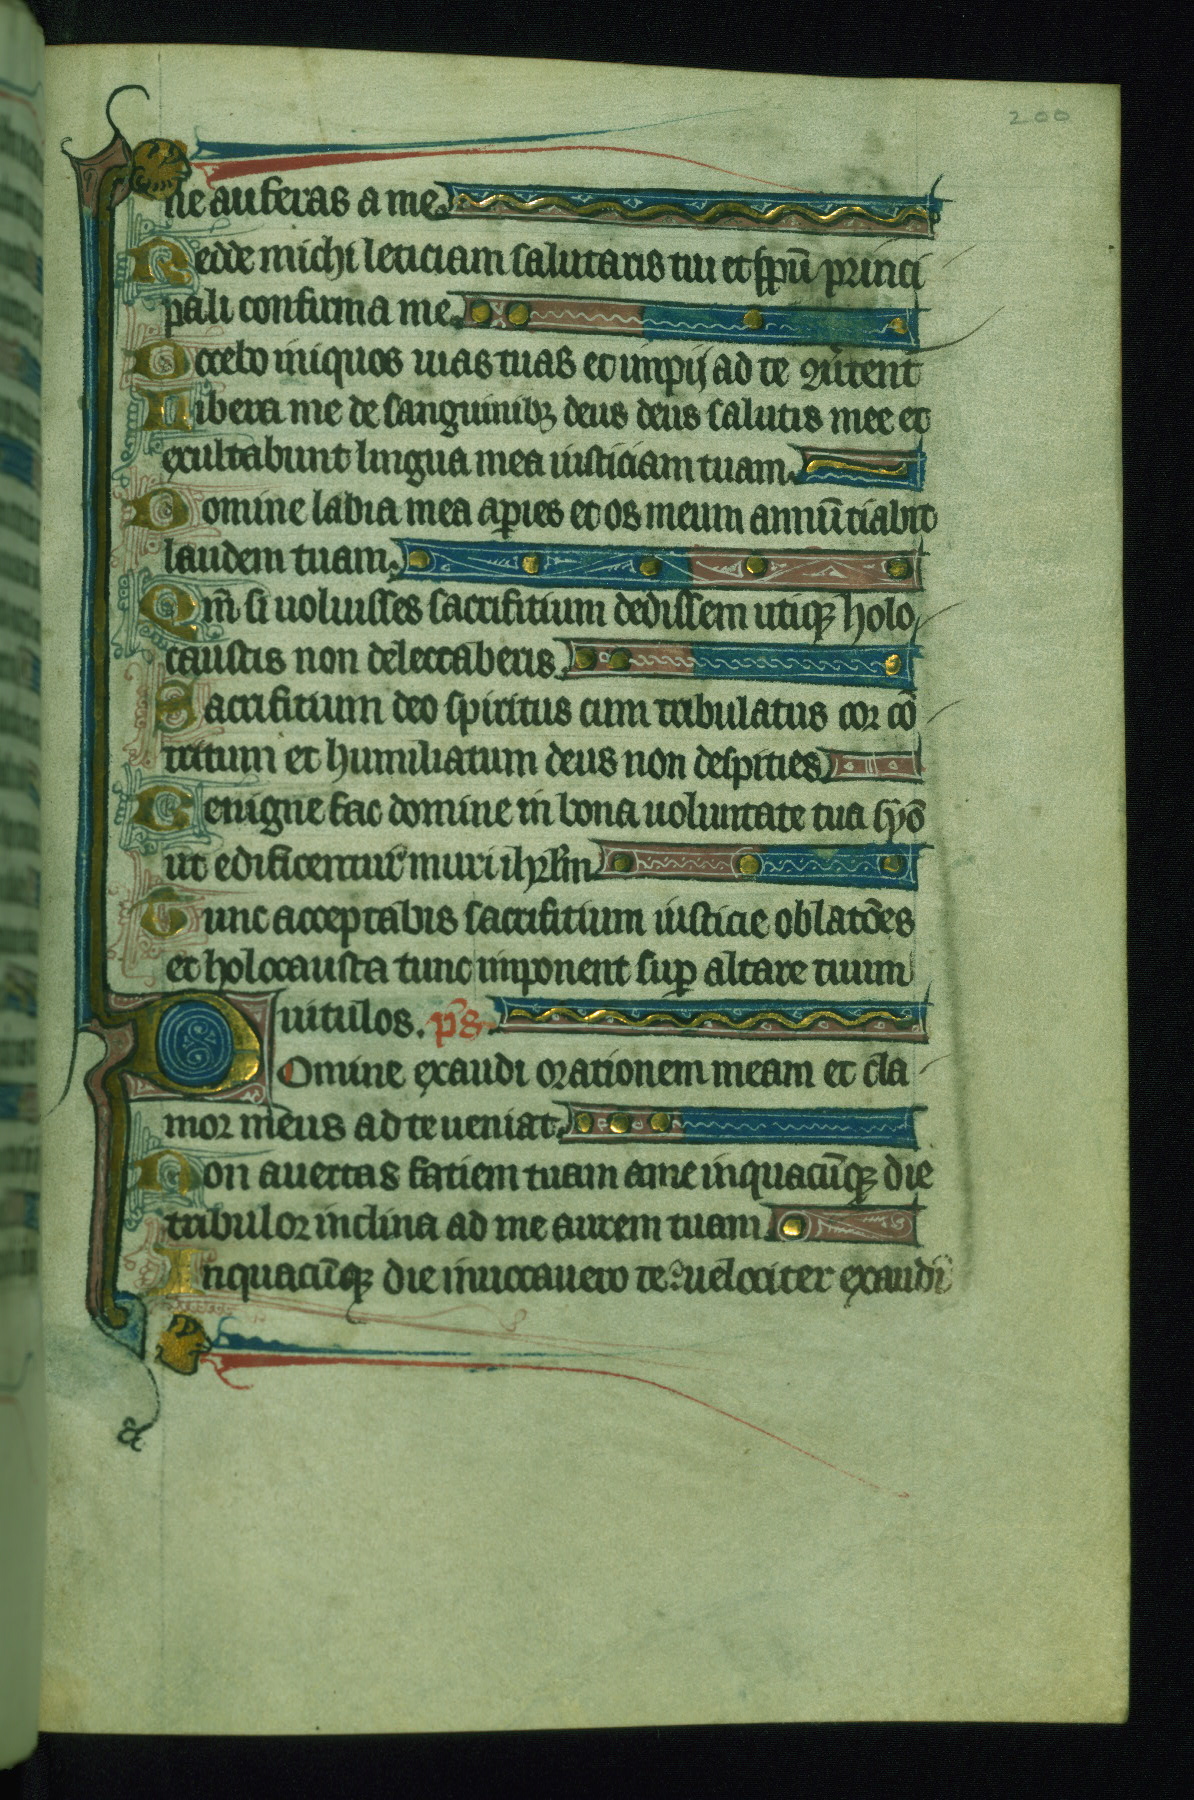 200
ne auferas a me
Redde michi leticiam salutaris tui et sp̄u princi
pali confirma me
Docebo iniquos uias tuas et impij ad te ꝯu̇tent
Libera me de sanguinibꝫ deus deus salutis mee et
exultabunt lingua mea iusticiam tuam
Domine labia mea aꝑies et os meum annūciabit
laudem tuam
Qm̄ si uoluisses sacrifitium dedissem utiqꝫ holo
caustis non delectaberis
Sacrifitium deo spiritus cum tribulatus cor cō
tritum et humiliatum deus non despities
Benigne fac domine in bona uoluntate tua syō
ut edificentur muri ihrl̄m
Tunc acceptabis sacrifitium iusticie oblatōes
et holocausta tunc imponent suꝑ altare tuum
uitulos. ps̄
Domine exaudi orationem meam et cla
mor meus ad te ueniat
Non auertas fatiem tuam a me in quacūqꝫ die
tribulor inclina ad me aurem tuam
In quacūqꝫ die inuocauero te uelociter exaudi